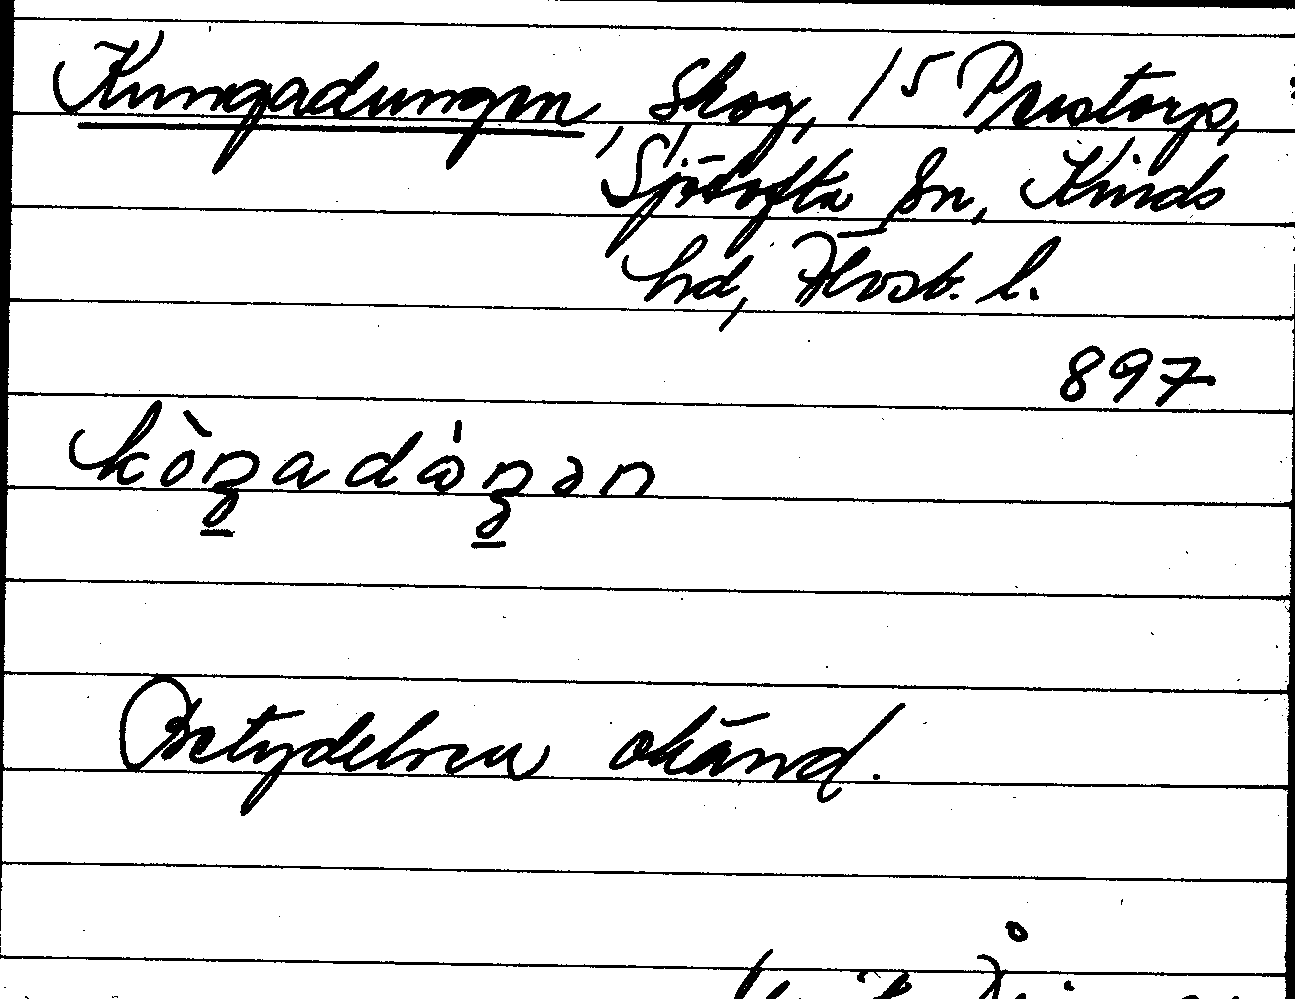 Kungadungen, Skog, 15 Prestorp,
Sjötofta sn, Kinds
hd, Älvsb. l.
897
kòŋadȧ̀ŋən
Betydelsen okänd.